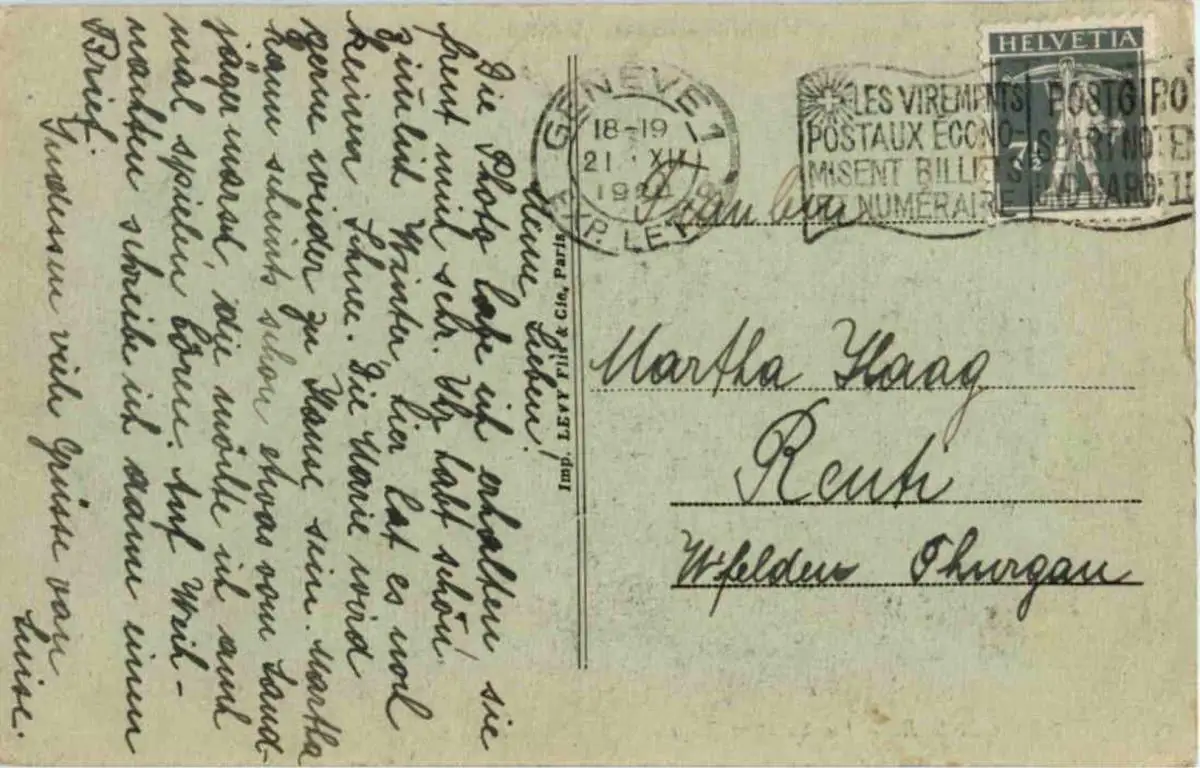 Meine Lieben!
Die Photo habe ich erhalten, sie
freut mich sehr. Ihr habt schön
Winter, hier hat es noch
keinen Schnee. Die Marie wird
gerne wieder zu Hause sein. Martha
kann scheints schon etwas vom Land-
jägermarsch, die möchte ich auch
mal spielen hören. Auf Weih-
nachten schreibe ich dann einen
Brief.
Indessen viele Grüsse von
Luise.
Imp. LEVY Fils & Cie, Paris
GENÈVE 1
18-19
21. XII
EXP. LET
LES VIREMENTS
POSTAUX ÉCONO-
MISENT BILLETS
NUMÉRAIRE
POSTGIRO
SPART NOTEN
UND BARGELD
HELVETIA
7½
Fräulein
Martha Haag
Reuti
W'felden Thurgau